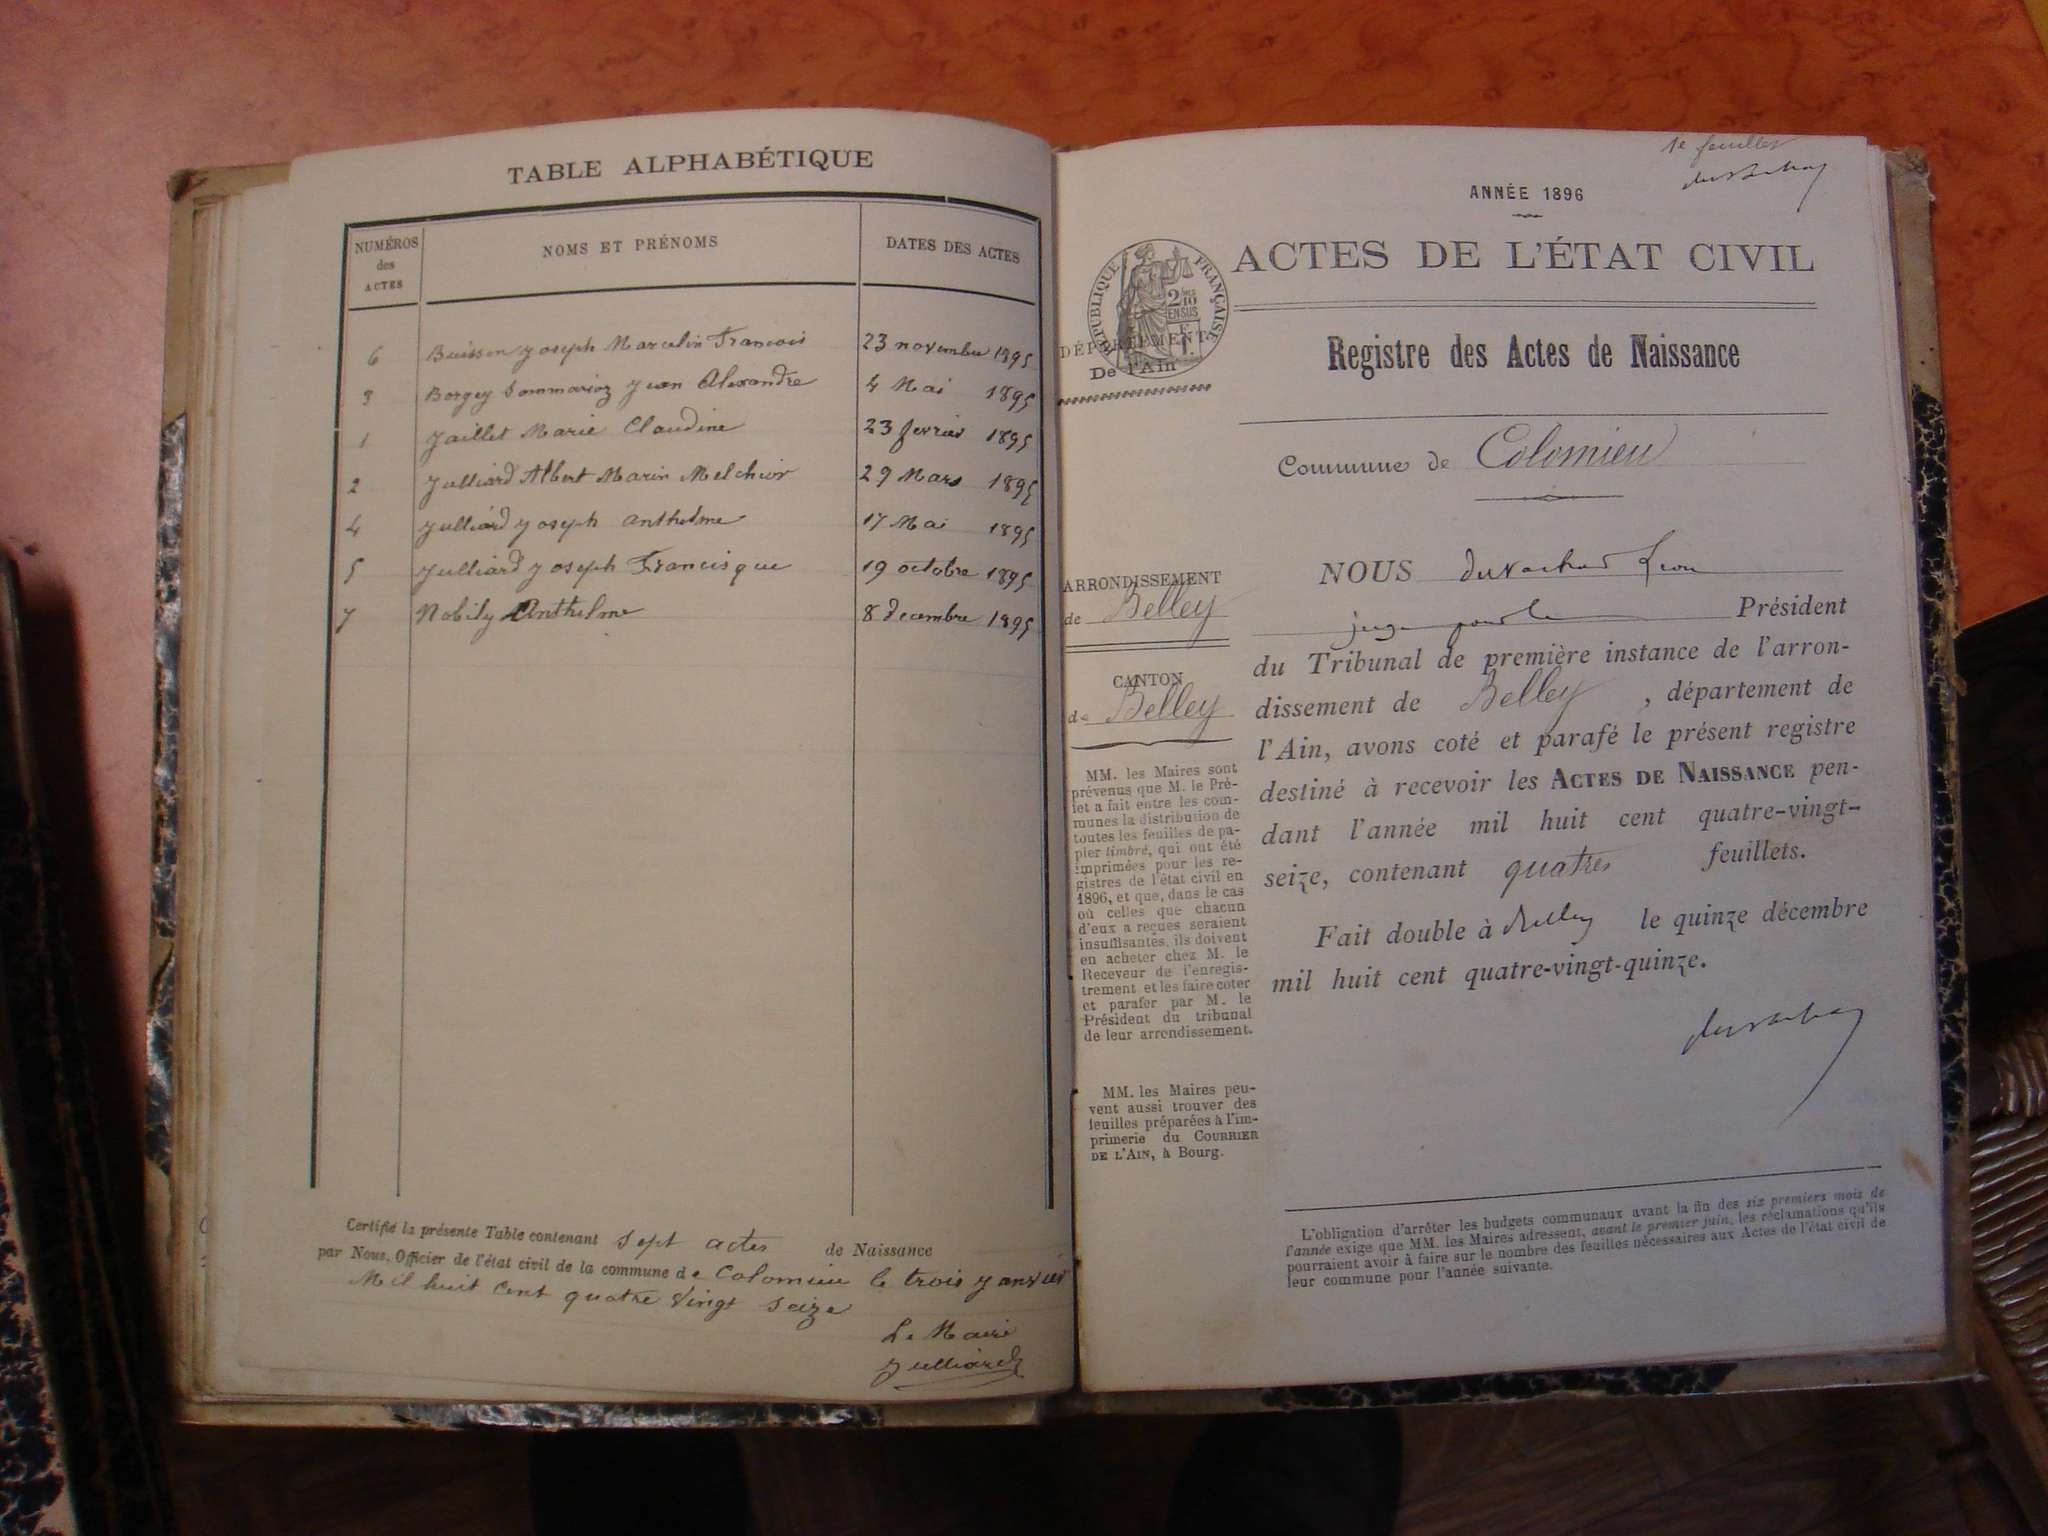 TABLE ALPHABÉTIQUE
NUMÉROS des ACTES NOMS ET PRÉNOMS DATES DES ACTES
6 Buisson Joseph Marcelin Francois 23 novembre 1895
3 Borgey Sommarioz Jean Alexandre 4 Mai 1895
1 Jaillet Marie Claudine 23 fevrier 1895
2 Julliard Albert Marin Melchior 29 Mars 1895
4 Julliard Joseph Anthelme 17 Mai 1895
5 Julliard Joseph Francisque 19 octobre 1895
7 Nobily Anthelme 8 decembre 1895
Certifié la présente Table contenant sept actes de Naissance
par Nous, Officier de l'état civil de la commune de Colomieu le trois janvier
Mil huit cent quatre vingt seize
Le Maire
Julliard
1e feuillet
ANNÉE 1896
ACTES DE L'ÉTAT CIVIL
RÉPUBLIQUE FRANÇAISE
2 10 EN SUS
DÉPARTEMENT
De l'Ain
Registre des Actes de Naissance
Commune de Colomieu
ARRONDISSEMENT
de Belley
CANTON
de Belley
MM. les Maires sont
prévenus que M. le Pré-
fet a fait entre les com-
munes la distribution de
toutes les feuilles de pa-
pier timbré, qui ont été
imprimées pour les re-
gistres de l'état civil en
1896, et que, dans le cas
où celles que chacun
d'eux a reçues seraient
insuffisantes, ils doivent
en acheter chez M. le
Receveur de l'enregis-
trement et les faire coter
et parafer par M. le
Président du tribunal
de leur arrondissement.
MM. les Maires peu-
vent aussi trouver des
feuilles préparées à l'im-
primerie du COURRIER
DE L'AIN, à Bourg.
NOUS Léon
juge pour le Président
du Tribunal de première instance de l'arron-
dissement de Belley, département de
l'Ain, avons coté et parafé le présent registre
destiné à recevoir les ACTES DE NAISSANCE pen-
dant l'année mil huit cent quatre-vingt-
seize, contenant quatre feuillets.
Fait double à Belley le quinze décembre
mil huit cent quatre-vingt-quinze.
L'obligation d'arrêter les budgets communaux avant la fin des six premiers mois de
l'année exige que MM. les Maires adressent, avant le premier juin, les réclamations qu'ils
pourraient avoir à faire sur le nombre des feuilles nécessaires aux Actes de l'état civil de
leur commune pour l'année suivante.